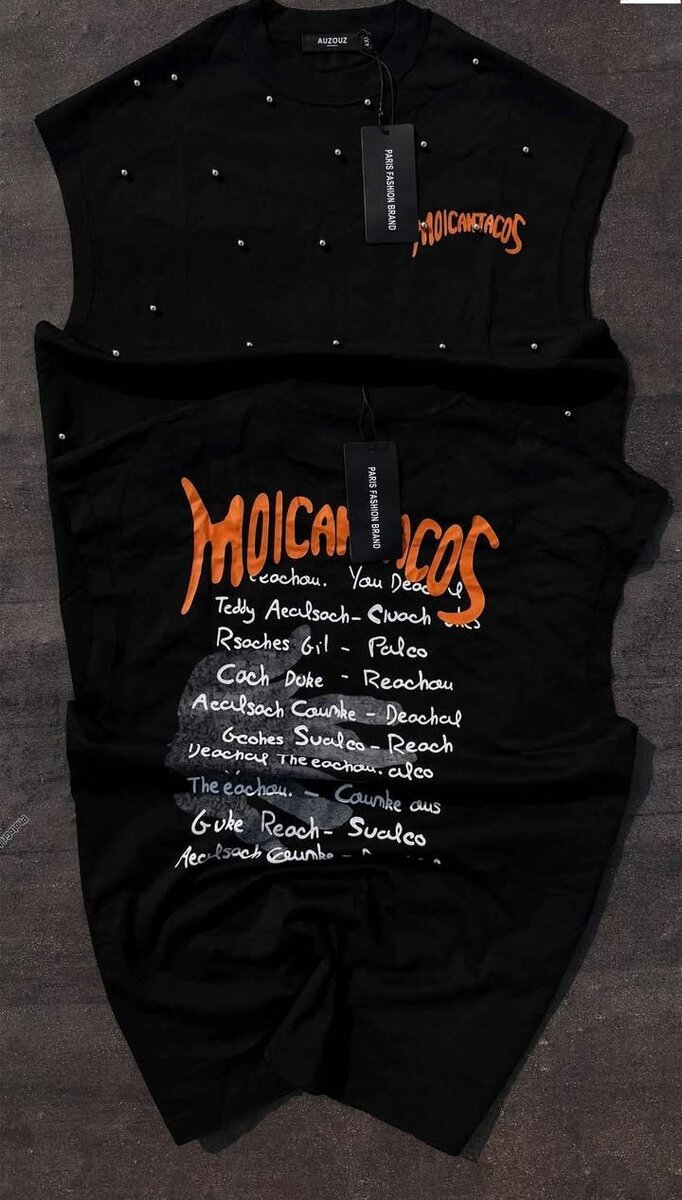 AUZOUZ
PARIS FASHION BRAND
MOICANTACOS
PARIS FASHION BRAND
MOICAN COS
eachou. You Deac
Teddy Aealsoach - Cluoch
Rsoaches Gil - Palco
Coch Duke - Reachou
Aealsoch Counke - Deachal
Gcohes Sualco - Reach
Deachal The eochou. alco
The eochou. - Counke ous
Guke Reach - Sualco
Aealsoch Counke -